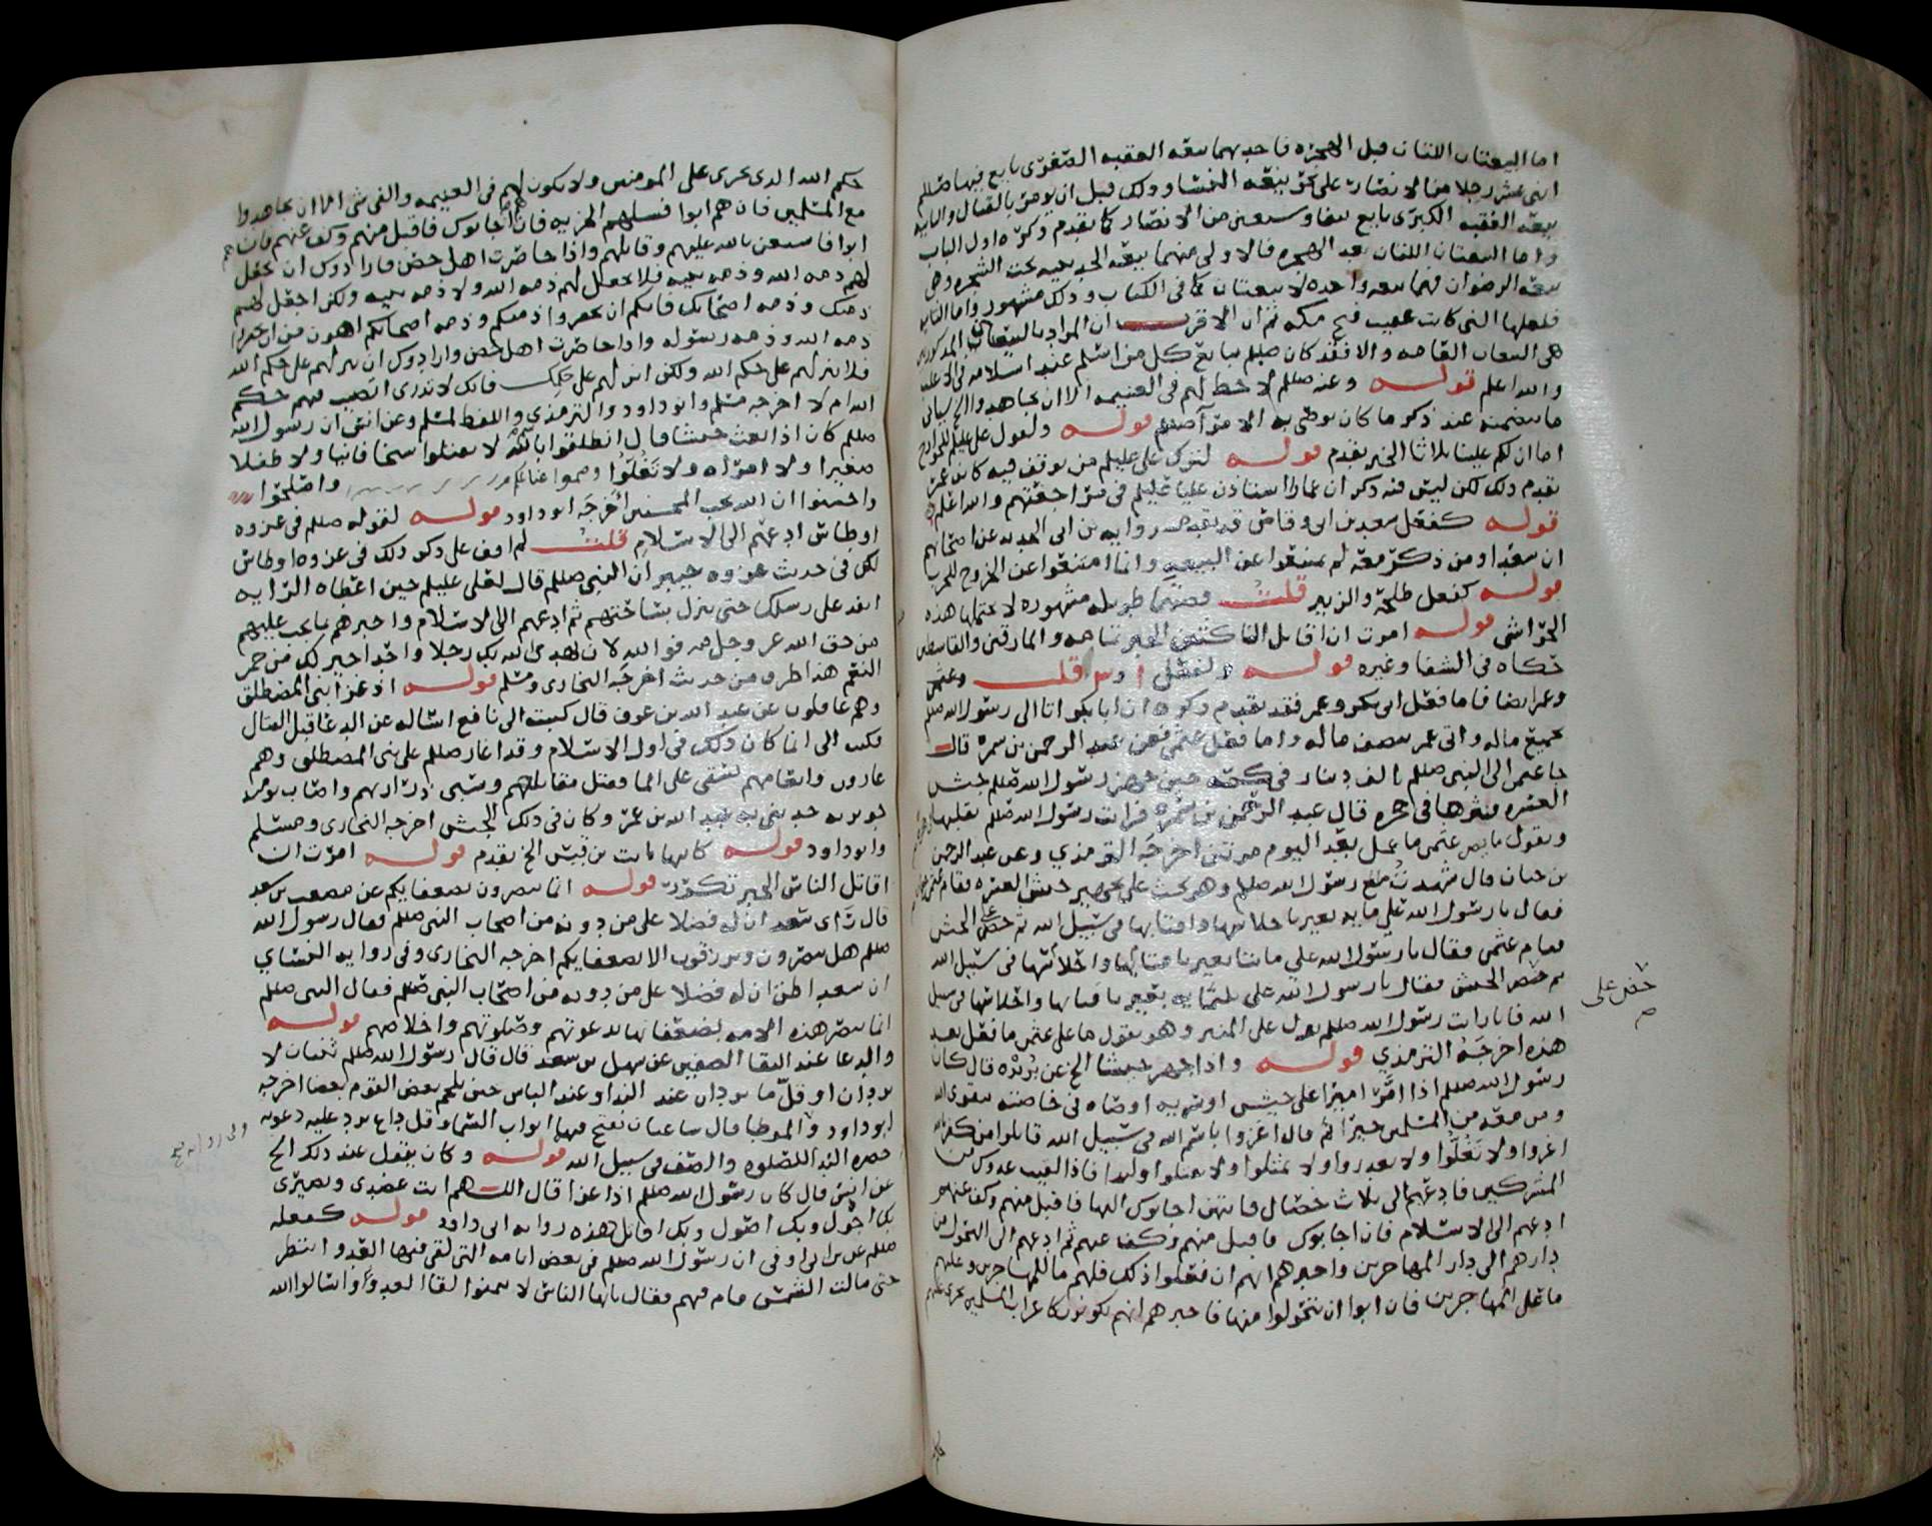 اما البيعتان اللتان قبل الهجره فاحديهما بيعه العقبه الصغرى بايع فيها صللم
اثنى عشر رجلا من الانصار على بيعه النساء وذلك قبل ان يومر بالقتال والثانيه
بيعه العقبه الكبرى بايع نيفا وسبعين من الانصار كما تقدم ذكره اول الباب
واما البيعتان اللتان بعد الهجره فالاولى منهما بيعه الحديبيه تحت الشجره وهى
بيعه الرضوان فهما بيعه واحده لا بيعتان كما فى الكتاب وذلك مشهور واما الثانيه
فلعلها التى كانت عقيب فتح مكه ثم ان الاقرب ان المراد بالبيعتان المذكورتان
هى البيعات العامه والا فقد كان صللم يبايع كل من اسلم عند اسلامه
والله اعلم قوله وعنه صللم لا حظ لهم فى الغنيمه الا ان يجاهدوا الخ سياتى
ما يتضمنه عند ذكر ما كان يوصى به الامرآ صللم قوله ولقول على عليلم للخوارج
اما ان لكم علينا ثلاثا الخبر تقدم قوله لترك على عليلم من توقف فيه كابن عمر
تقدم ذلك لكن ليس فيه ذكر ان عمارا استاذن عليا عليلم فى مراجعتهم والله اعلم
قوله كفعل سعد بن ابى وقاص قد تقدم روايه بن ابى الحديد عن اصحابهم
ان سعدا ومن ذكر معه لم يمتنعوا عن البيعه وانما امتنعوا عن الخروج للحرب
قوله كفعل طلحه والزبير قلت قصتهما طويله مشهوره لا تحتملها هذه
الحواشى قوله امرت ان اقاتل الناكثين الخبر تمامه والمارقين والقاسطين
حكاه فى الشفا وغيره قوله ولفعل قلت وعثمن
وعمر ايضا فاما فعل ابى بكر وعمر فقد تقدم ذكره ان ابا بكر اتا الى رسول الله صللم
بجميع ماله واتى عمر بنصف ماله واما فعل عثمن فعن عبد الرحمن بن سمره قال
جا عثمن الى النبى صللم بالف دينار فى كمه حين جهز رسول الله صللم جيش
العسره فنثرها فى حجره قال عبد الرحمن بن سمره فرايت رسول الله صللم يقلبها
ويقول ما يضر عثمن ما عمل بعد اليوم مرتين اخرجه الترمذي وعن عبد الرحمن
بن حباب قال شهدت مع رسول الله صللم وهو يحث على تجهيز جيش العسره فقام عثمن
فقال يا رسول الله علي مايه بعير باحلاسها واقتابها فى سبيل الله ثم حض على الجيش
فقام عثمن وقال يا رسول الله علي مايتا بعير باقتابها واحلاسها فى سبيل الله
ثم حض الجيش فقال يا رسول الله علي ثلثمايه بعير باقتابها واحلاسها فى سبيل
الله فانا رايت رسول الله صللم نزل على المنبر وهو يقول ما على عثمن ما فعل بعد
هذه اخرجه الترمذي قوله واذا جهز جيشا الخ عن بريده قال كان
رسول الله صللم اذا امر اميرا على جيش او سريه اوصاه فى خاصته بتقوى الله
ومن معه من المسلمين خيرا ثم قال اغزوا باسم الله فى سبيل الله قاتلوا من كفر بالله
اغزوا ولا تغلوا ولا تغدروا ولا تمثلوا ولا تقتلوا وليدا فاذا لقيت عدوك من
المشركين فادعهم الى ثلاث خصال فايتهن اجابوك اليها فاقبل منهم وكف عنهم
ادعهم الى الاسلام فان اجابوك فاقبل منهم وكف عنهم ثم ادعهم الى التحول من
دارهم الى دار المهاجرين واخبرهم انهم ان فعلوا ذلك فلهم ما للمهاجرين وعليهم
ما على المهاجرين فان ابوا ان يتحولوا منها فاخبرهم انهم يكونون كاعراب المسلمين يجرى عليهم
حض على
حكم الله الذى يجرى على المومنين ولا يكون لهم فى الغنيمه والفى شى الا ان يجاهدوا
مع المسلمين فان هم ابوا فسلهم الجزيه فان هم اجابوك فاقبل منهم وكف عنهم فان هم
ابوا فاستعن بالله عليهم وقاتلهم واذا حاصرت اهل حصن فارادوك ان تجعل
لهم ذمه الله وذمه نبيه فلا تجعل لهم ذمه الله ولا ذمه نبيه ولكن اجعل لهم
ذمتك وذمه اصحابك فانكم ان تخفروا ذممكم وذمه اصحابكم اهون من ان تخفروا
ذمه الله وذمه رسوله واذا حاصرت اهل حصن وارادوك ان تنزلهم على حكم الله
فلا تنزلهم على حكم الله ولكن انزلهم على حكمك فانك لا تدرى اتصيب فيهم حكم
الله ام لا اخرجه مسلم وابو داود والترمذي واللفظ لمسلم وعن انس ان رسول الله
صللم كان اذا بعث جيشا قال انطلقوا بالله لا تقتلوا شيخا فانيا ولا طفلا
صغيرا ولا امراه ولا تغلوا وضموا غنايمكم واصلحوا
واحسنوا ان الله يحب المحسنين اخرجه ابو داود قوله لقوله صللم فى غزوه
اوطاس ادعهم الى الاسلام قلت لم اقف على ذكر ذلك فى غزوه اوطاس
لكن فى حديث غزوه خيبر ان النبى صللم قال لعلى عليلم حين اعطاه الرايه
انفذ على رسلك حتى تنزل بساحتهم ثم ادعهم الى الاسلام واخبرهم بما يجب عليهم
من حق الله عز وجل فيه فوالله لان يهدى الله بك رجلا واحدا خير لك من حمر
النعم هذا طرف من حديث اخرجه البخارى ومسلم قوله اذ غزا بنى المصطلق
وهم غافلون عن عبد الله بن عون قال كتبت الى نافع اساله عن الدعا قبل القتال
فكتب الى انما كان ذلك فى اول الاسلام وقد اغار صللم على بنى المصطلق وهم
غارون وانعامهم تسقى على الما فقتل مقاتلهم وسبى ذراريهم واصاب يومئذ
جويريه حدثنى به عبد الله بن عمر وكان فى ذلك الجيش اخرجه البخارى ومسلم
وابو داود قوله كابنها ثابت بن قيس الخ تقدم قوله امرت ان
اقاتل الناس الخبر تكرر قوله انما تنصرون بضعفايكم عن مصعب بن سعد
قال رَاى سعد ان له فضلا على من دونه من اصحاب النبى صللم فقال رسول الله
صللم هل تنصرون وترزقون الا بضعفايكم اخرجه البخارى وفى روايه النساي
ان سعدا ظن ان له فضلا على من دونه من اصحاب النبى صللم فقال النبى صللم
انما تنصر هذه الامه بضعفايها بدعوتهم وصلوتهم واخلاصهم قوله
والدعا عند التقا الصفين عن سهل بن سعد قال قال رسول الله صللم ثنتان لا
تردان او قلّ ما تردان عند الندا وعند الباس حين يلحم بعض القوم بعضا اخرجه
ابو داود وللموطا قال ساعتان تفتح فيهما ابواب السما وقل داع ترد عليه دعوته
حضره الندا للصلوه والصف فى سبيل الله قوله وكان يفعل عند ذلك الخ
عن انس قال كان رسول الله صللم اذا غزا قال اللهم انت عضدى ونصيرى
بك احول وبك اصول وبك اقاتل هذه روايه ابى داود قوله كفعله
صللم عن بن ابى اوفى ان رسول الله صللم فى بعض ايامه التى لقى فيها العدو انتظر
حتى مالت الشمس قام فيهم فقال يايها الناس لا تتمنوا لقا العدو واسالوا الله